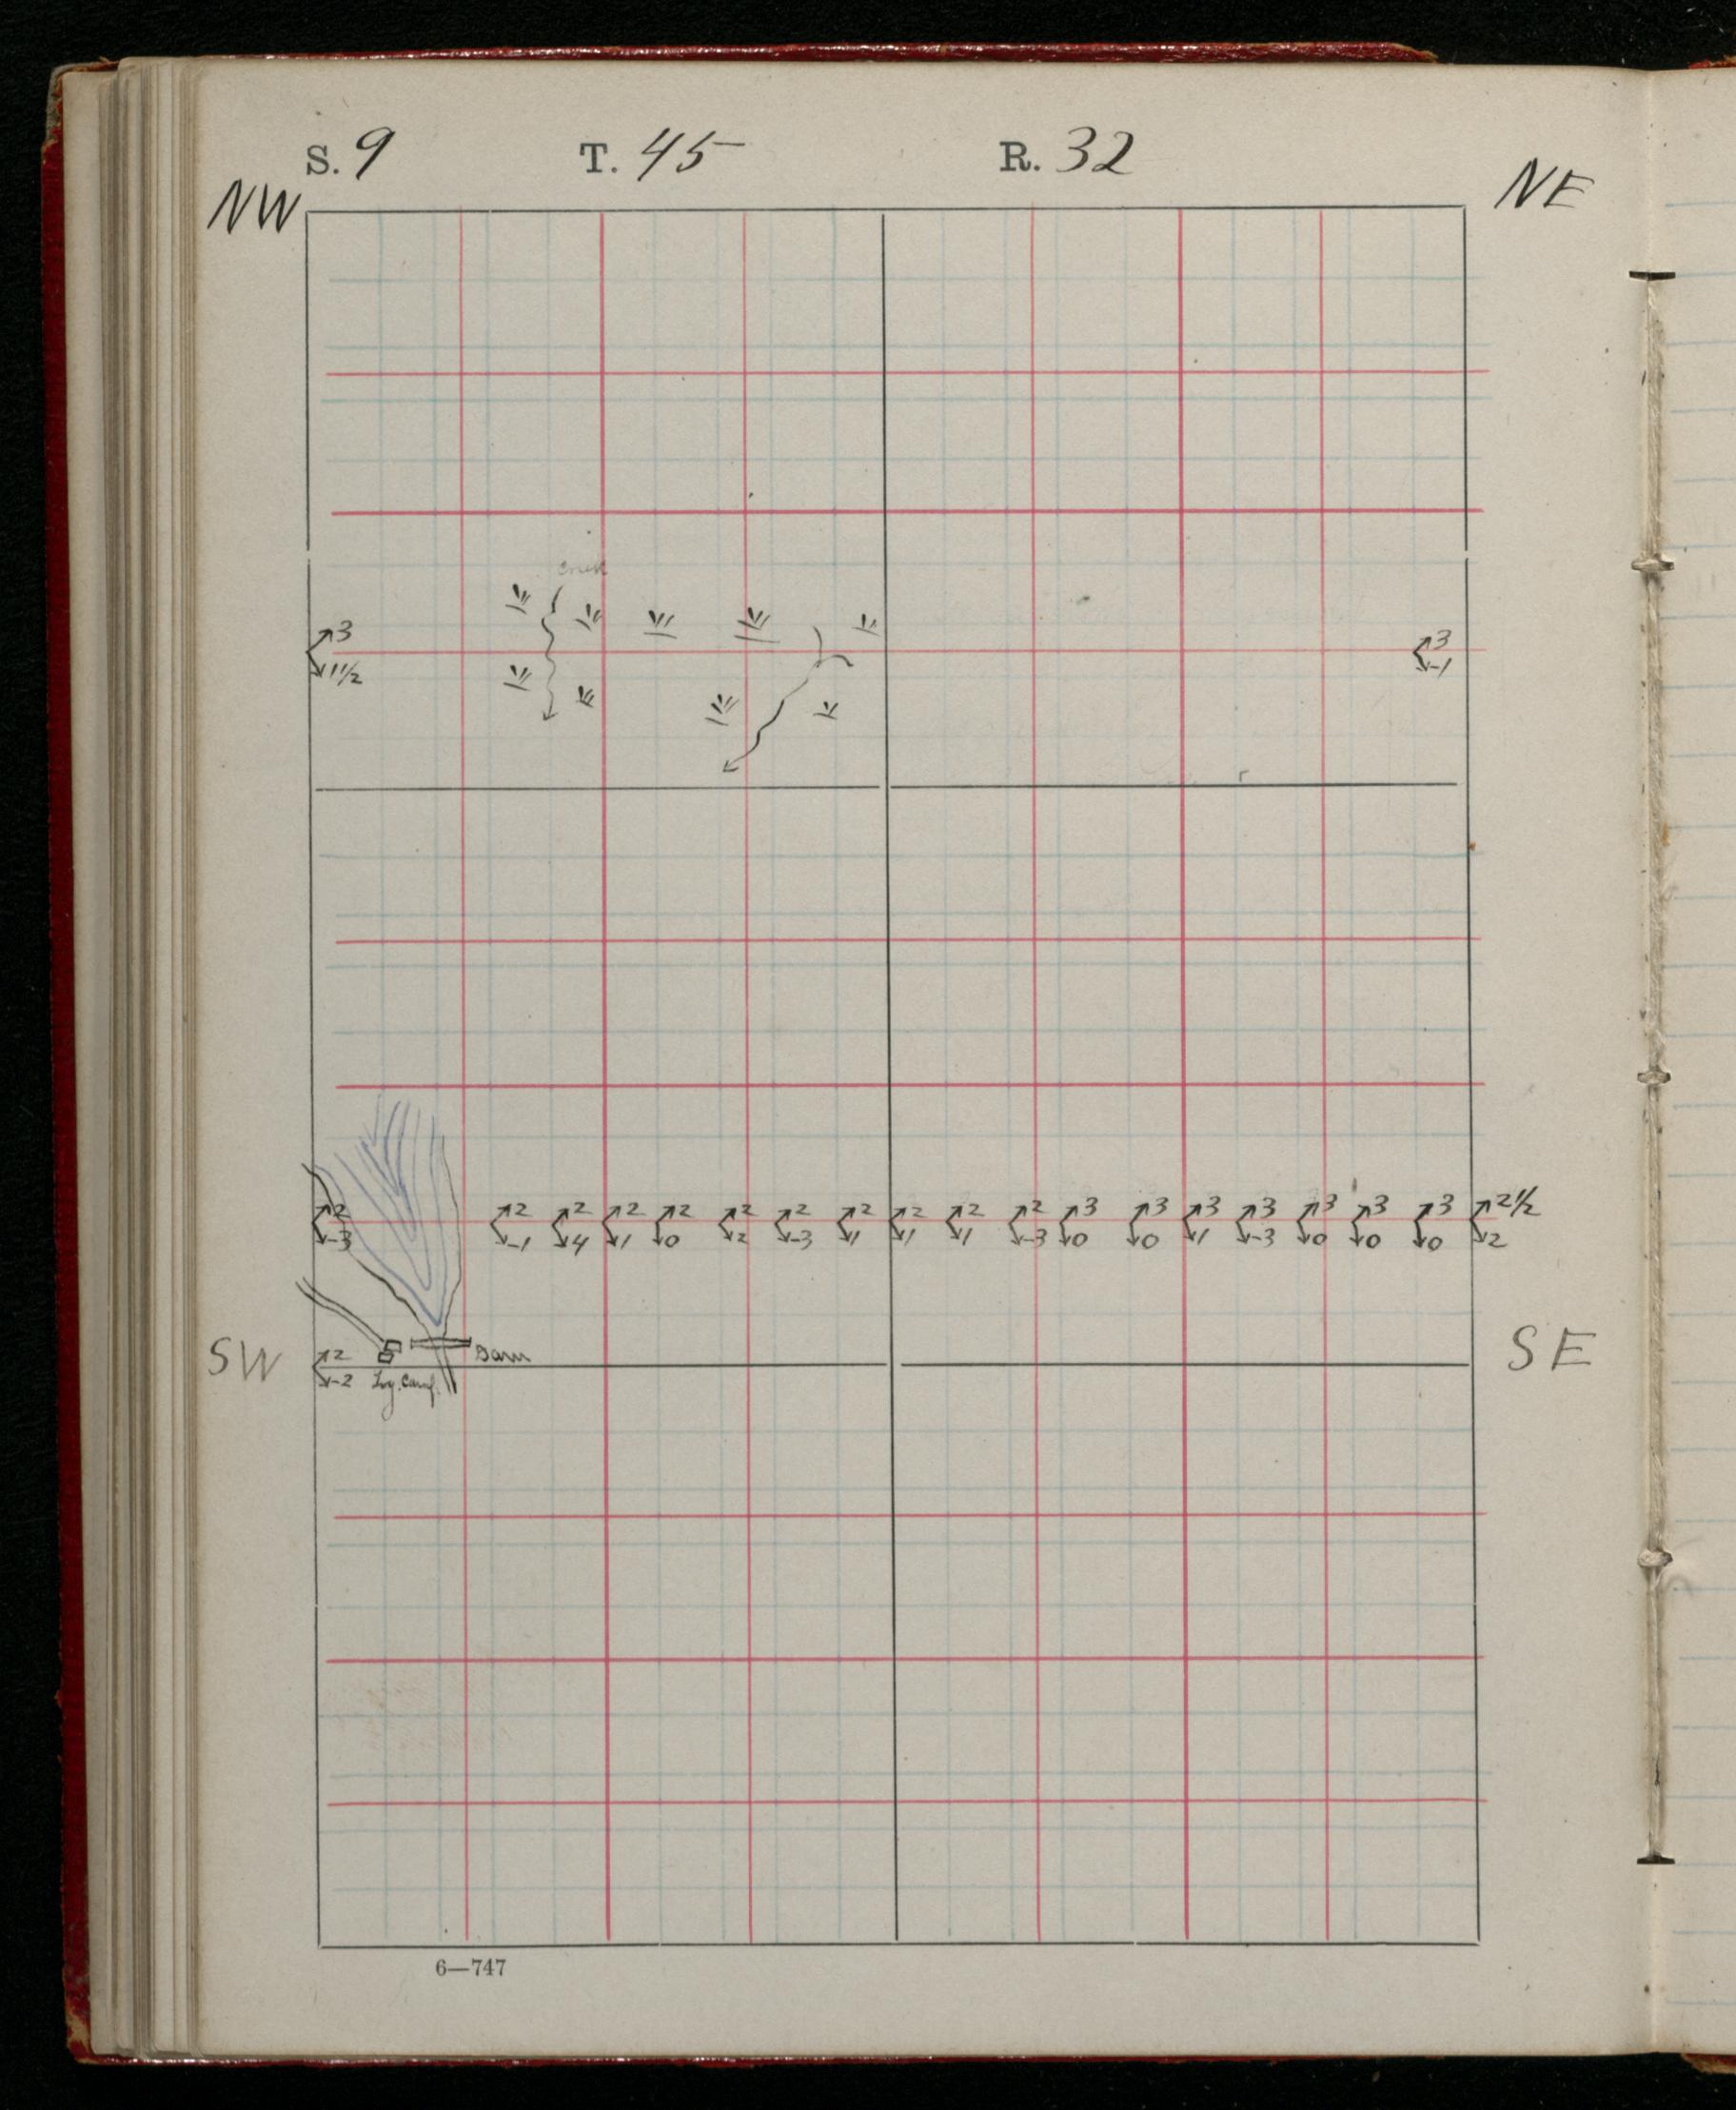 S. 9 T. 45 R. 32
NW NE
creek
3 3
1 1/2 -1
2 2 2 2 2 2 2 2 2 2 2 3 3 3 3 3 3 3 2 1/2
-3 -1 4 1 0 2 -3 1 1 1 -3 0 0 1 -3 0 0 0 2
SW 2 Dam SE
-2 Log. Camp.
6—747